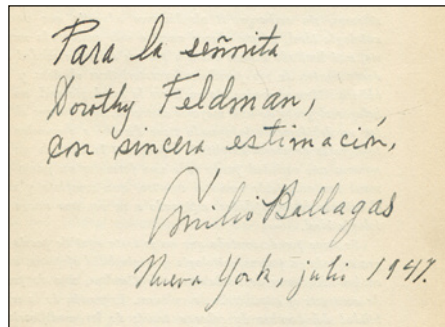 Para la señorita
Dorothy Feldman,
con sincera estimación,
Emilio Ballagas
Nueva York, julio 1947.